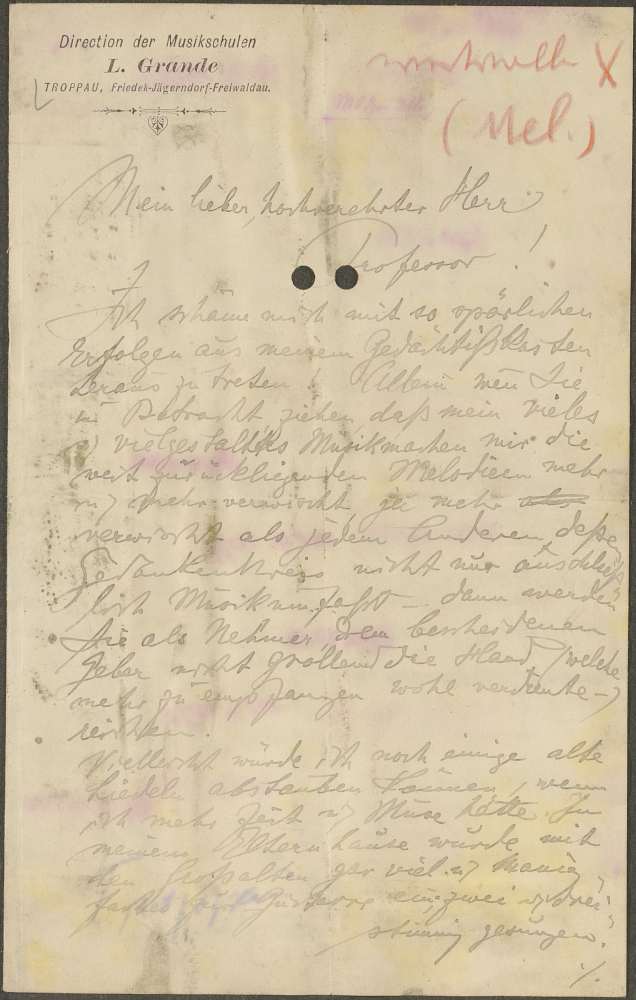 Direction der Musikschulen
L. Grande
TROPPAU, Friedek-Jägerndorf-Freiwaldau.
wertvoll X
(Mel.)
Mein lieber, hochverehrter Herr
Professor!
Ich schäme mich mit so spärlichen
Erfolgen aus meinem Gedächtnißkasten
heraus zu treten! Allein wen Sie
in Betracht ziehen, daß mein vieles
u) vielgestaltiges Musikmachen mir die
weit zurückliegenden Melodieen mehr
u) mehr verwischt, ja mehr
verwischt als jedem Anderen, deßen
Gedankenkreis nicht nur auschließ
lich Musik umfaßt – dann werden
Sie als Nehmer dem bescheidenen
Geber nicht grollend die Hand, (welche
mehr zu empfangen wohl verdiente –)
reichen.
Vielleicht würde ich noch einige alte
Liedeln abstauben können, wenn
ich mehr Zeit u) Muse hätte. In
meinem Elternhause wurde mit
den Großalten gar viel u) Manig
faches zur Guitarre ein, zwei u) drei
stimmig gesungen.
./.